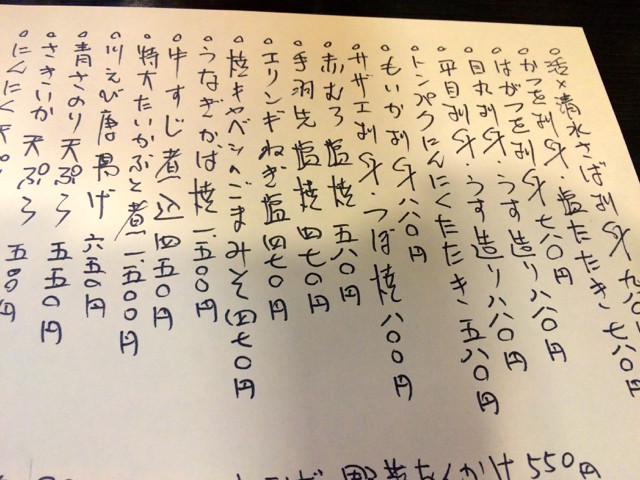 ○活〆清水さば刺身 九八〇円
○かつを刺身・塩たたき 七八〇円
○はがつを刺身 七八〇円
○目丸刺身・うす造り 八八〇円
○平目刺身・うす造り 八八〇円
○トンパクにんにくたたき 五八〇円
○もいか刺身 八八〇円
○サザエ刺身・つぼ焼 八〇〇円
○赤むろ塩焼 五八〇円
○手羽先塩焼 四七〇円
○エリンギねぎ塩 四七〇円
○焼キャベツのごまみそ 四七〇円
○うなぎかば焼 一、五〇〇円
○牛すじ煮込 四五〇円
○特大たいかぶと煮 一、五〇〇円
○川えび唐揚げ 六五〇円
○青さのり天ぷら 五五〇円
○さきいか天ぷら 五五〇円
○にんにく天ぷら 五〇〇円
550円